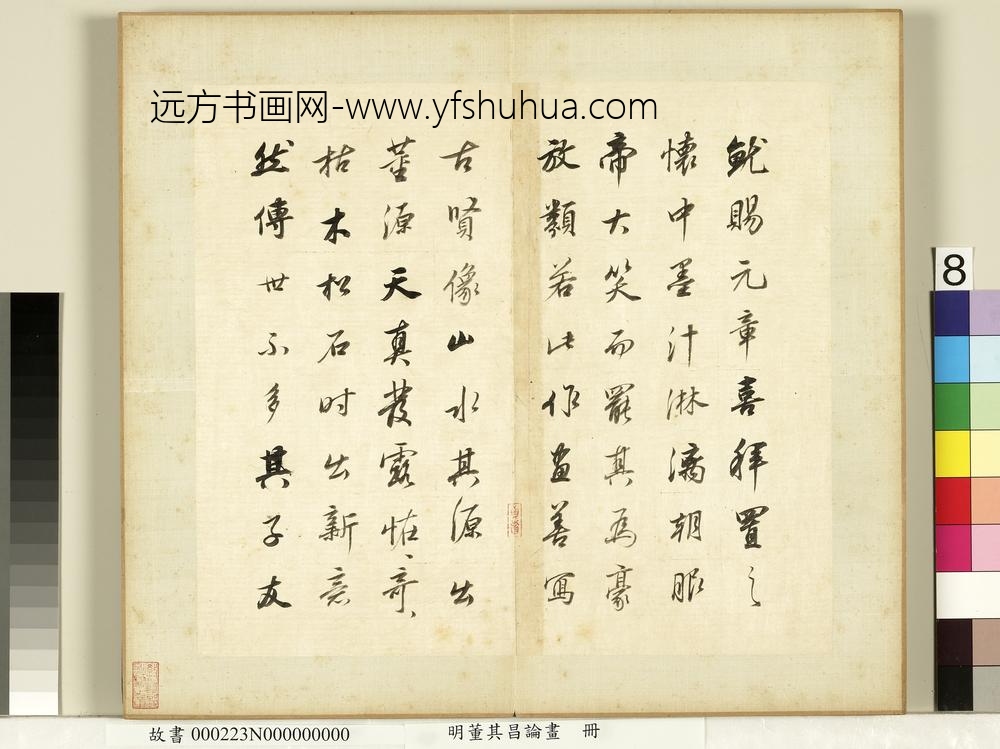 远方书画网-www.yfshuhua.com
就賜元章喜拜置之
懷中墨汁淋漓朝服
帝大笑而罷其為豪
放類若此作畫善寫
古賢像山水其源出
董源天真發露怪怪奇奇
枯木松石時出新意
然傳世不多其子友
8
故書 000223N000000000
明董其昌論畫 冊